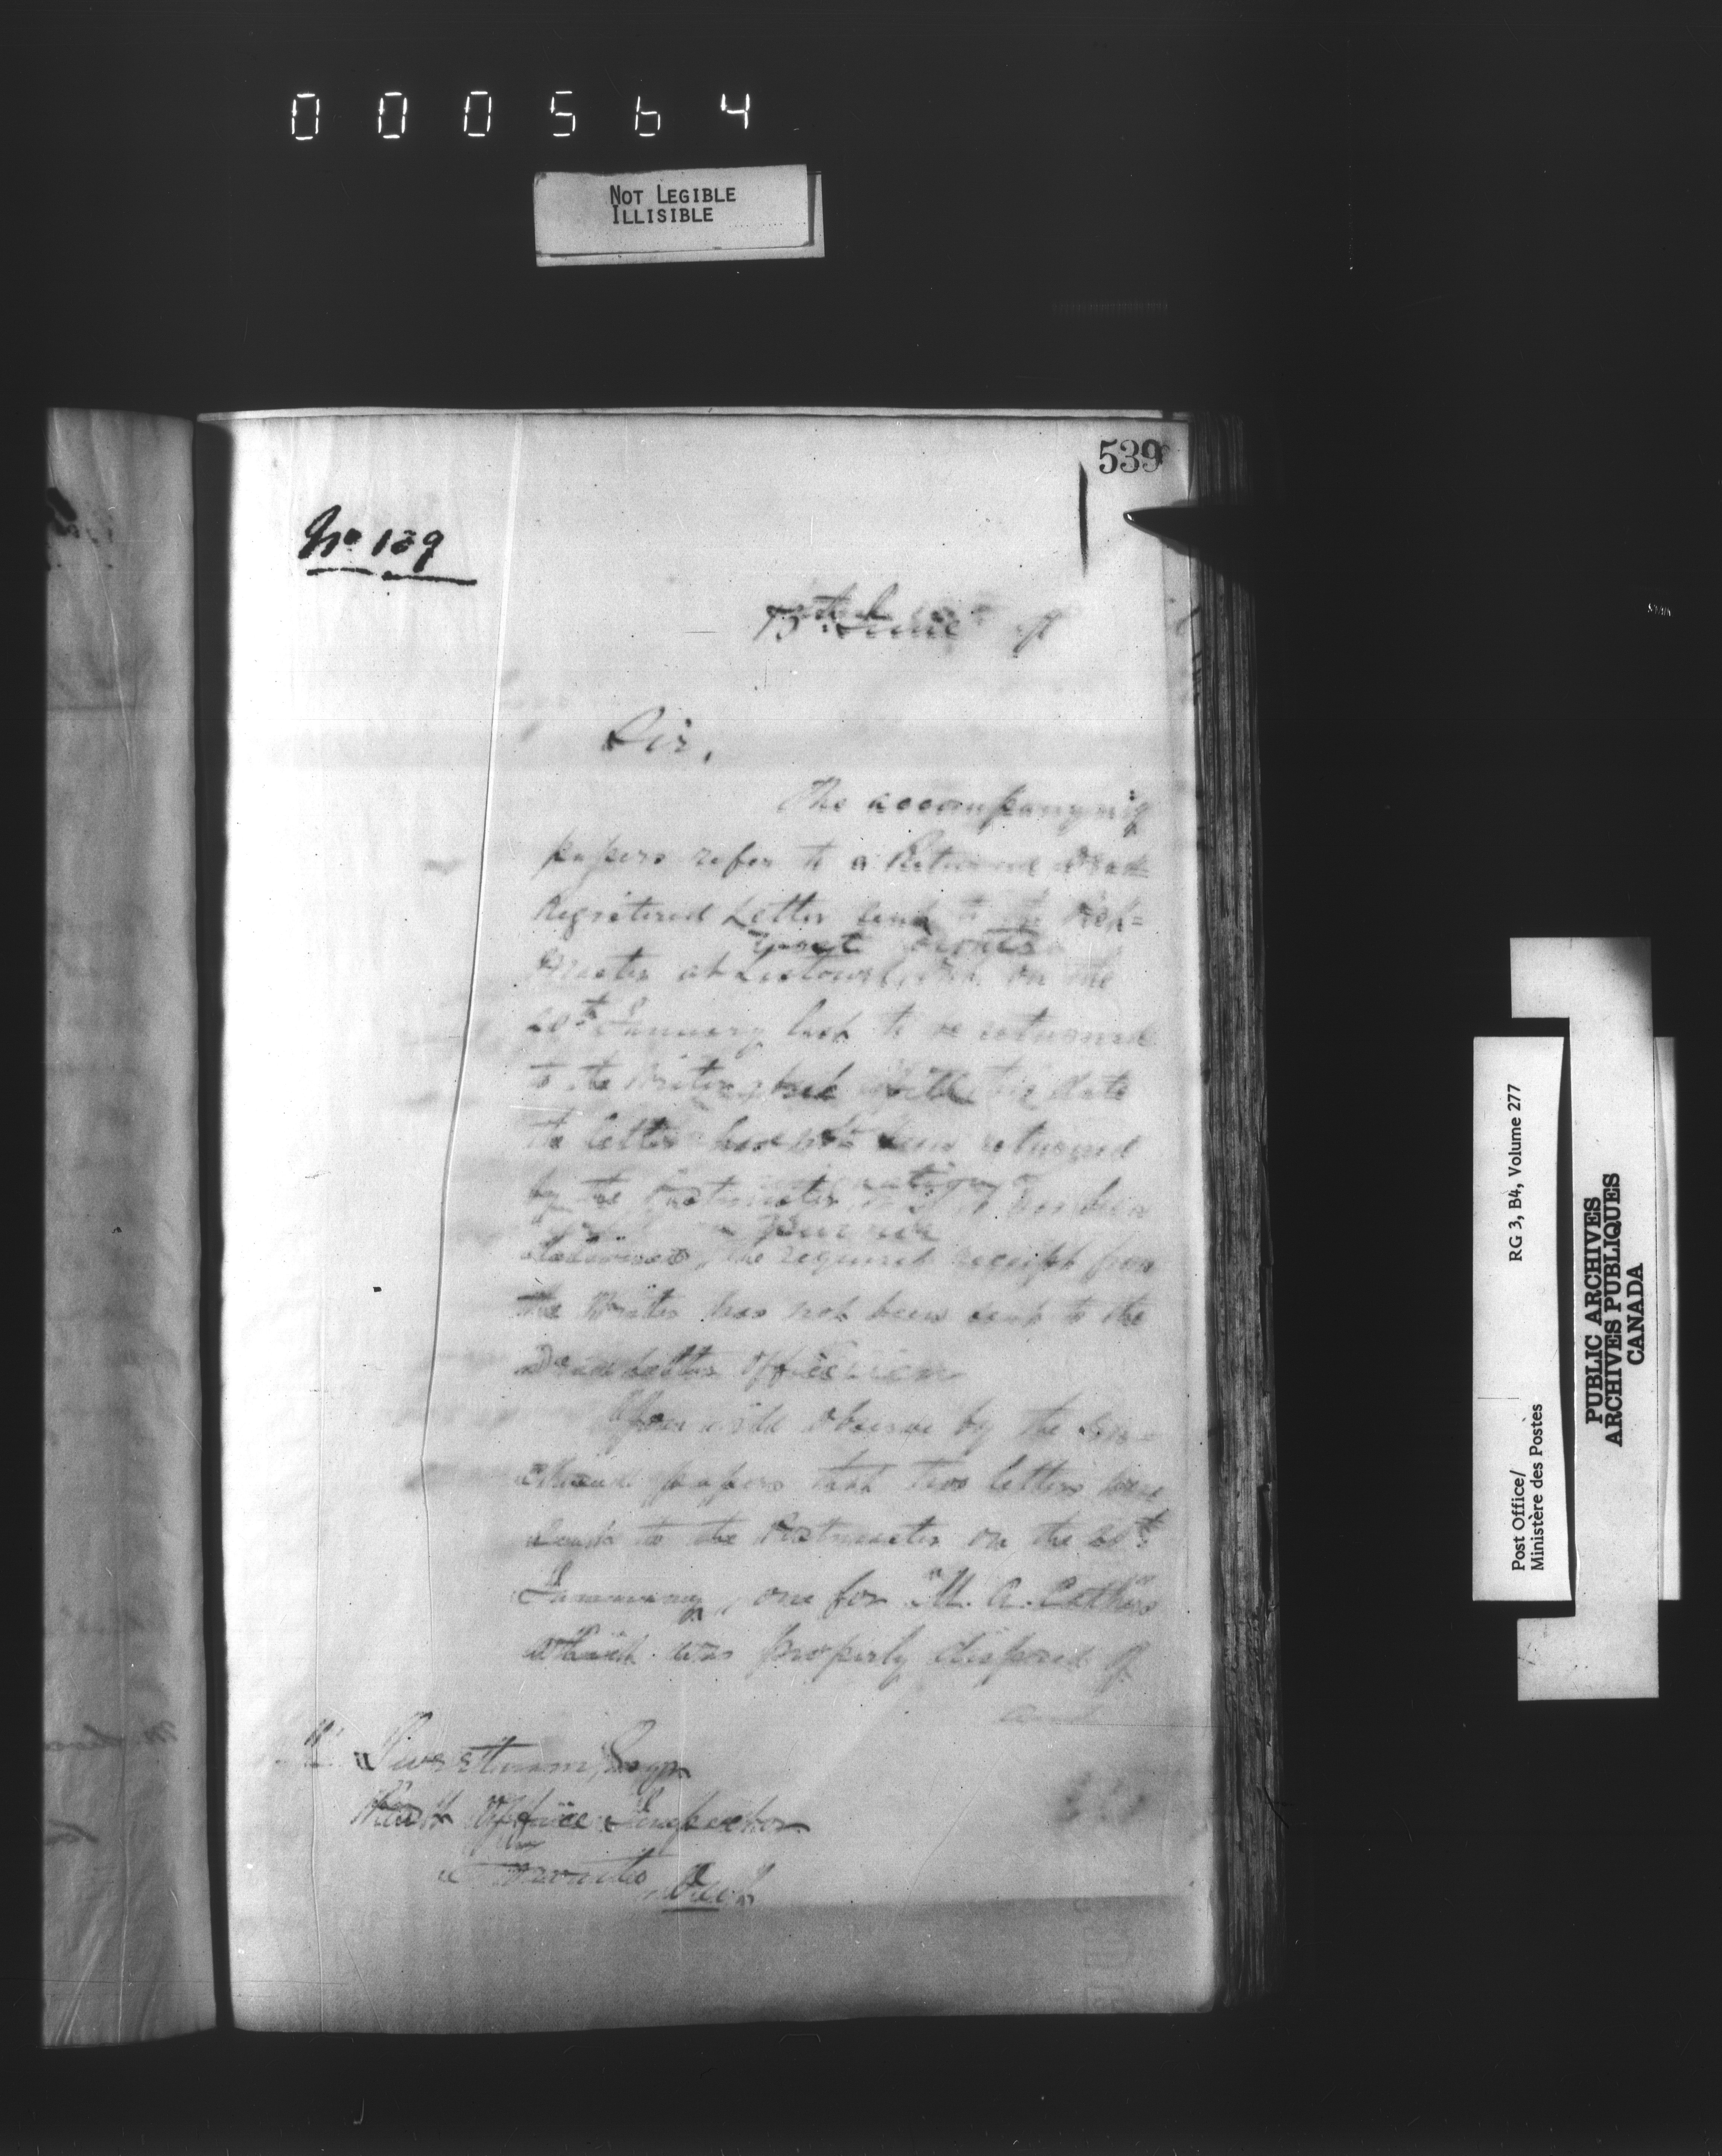 000564
NOT LEGIBLE
ILLISIBLE
539
No 139
13th June
Sir,
The accompanying
papers refer to a Returned Dead
Registered Letter sent to the Post=
Master at Listowel, Ont. on the
20th January last to be returned
to the Writer, but up to this date
the letter has not been returned
by the Postmaster, or if it has been
delivered, the required receipt from
the Writer has not been sent to the
Dead Letter Office
You will observe by the en=
closed papers that two letters were
sent to the Postmaster on the 20th
January, one for "M. A. Cathers"
which was properly disposed of
and
Sweetnam, Esqr
Post Office Inspector
Toronto, Ont.
RG 3, B4, Volume 277
Post Office/
Ministère des Postes
PUBLIC ARCHIVES
ARCHIVES PUBLIQUES
CANADA